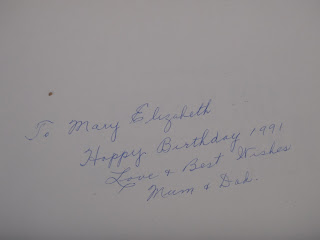 To Mary Elizabeth
Happy Birthday 1991
Love & Best Wishes
Mum & Dad.